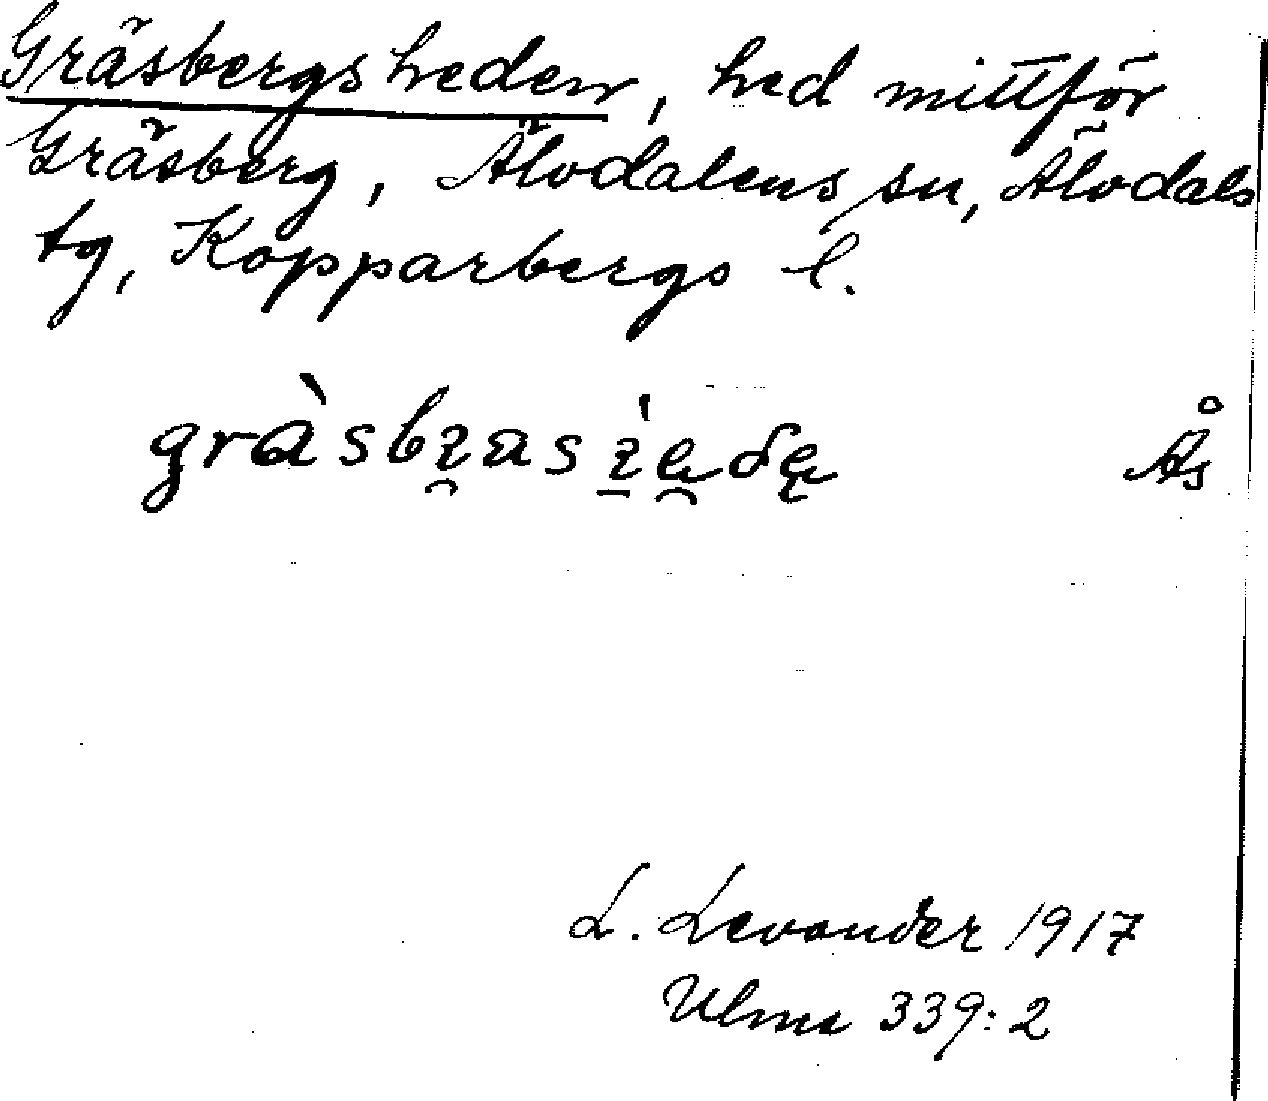 Gräsbergsheden, hed mittför
Gräsberg, Älvdalens sn, Älvdals
tg, Kopparbergs l.
Ås
L. Levander 1917
Ulma 339:2